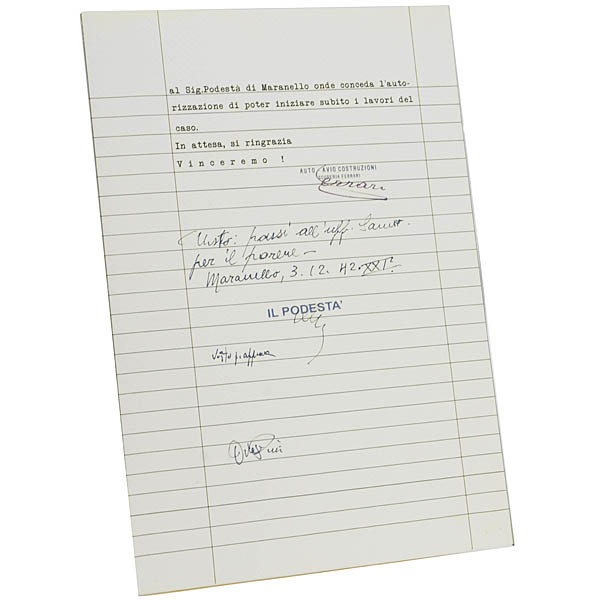 al Sig.Podestà di Maranello onde conceda l'auto-
rizzazione di poter iniziare subito i lavori del
caso.
In attesa, si ringrazia
Vinceremo !
AUTO AVIO COSTRUZIONI
SCUDERIA FERRARI
Ferrari
Visto: passi all'uff. Sanit.
per il parere —
Maranello, 3.12.42.XXI°
IL PODESTA'